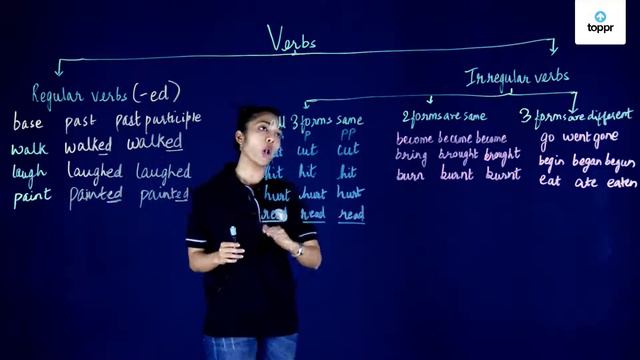 toppr
Verbs
Regular verbs (-ed)
base past past participle
walk walked walked
laugh laughed laughed
paint painted painted
Irregular verbs
3 forms same
P PP
cut cut
hit hit hit
hurt hurt hurt
read read read
2 forms are same
become became become
bring brought brought
burn burnt burnt
3 forms are different
go went gone
begin began begun
eat ate eaten